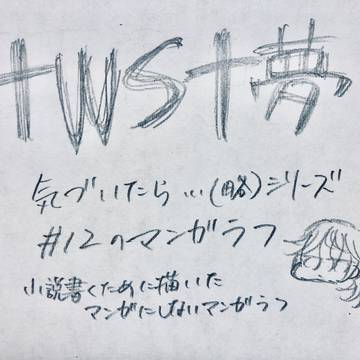 †WS†夢
気づいたら…(略)シリーズ
#12のマンガラフ
小説書くために描いた
マンガにしないマンガラフ